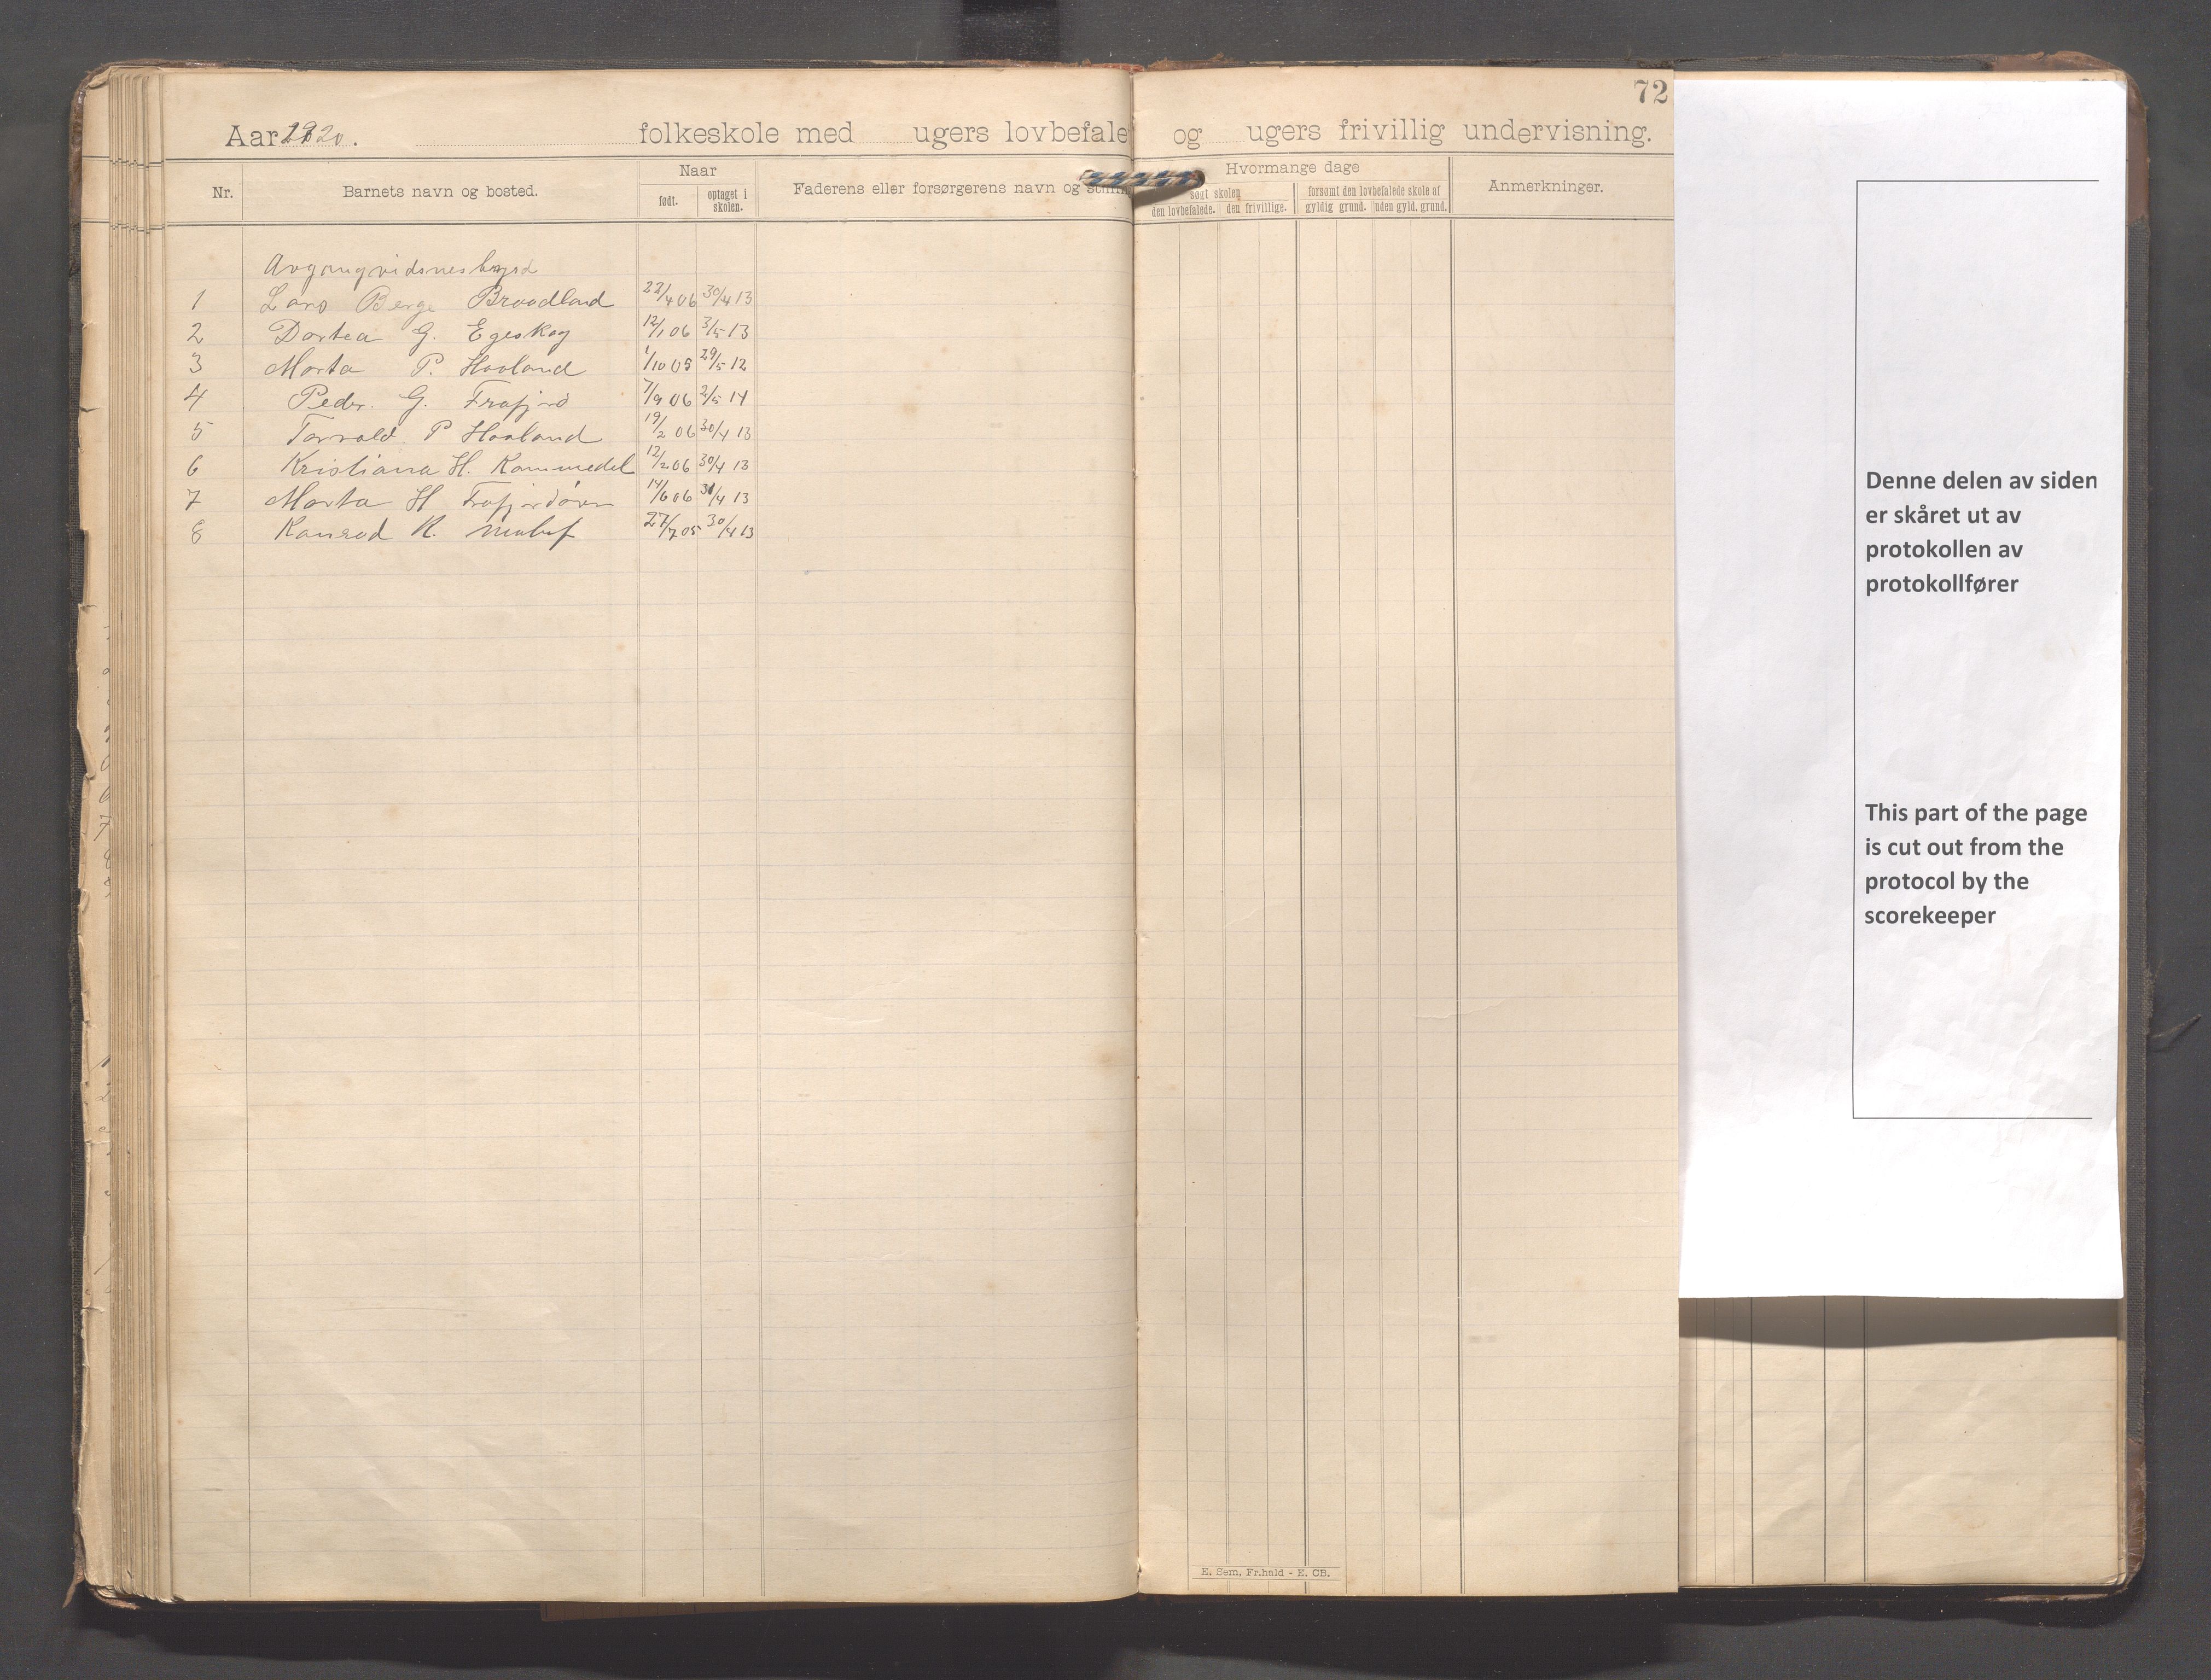 72
Aar 1920. folkeskole med ugers lovbefale og ugers frivillig undervisning.
Nr. Barnets navn og bosted. Naar født. optaget i skolen. Faderens eller forsørgerens navn og Hvormange dage søgt skolen den lovbefalede. den frivillige. forsømt den lovbefalede skole af gyldig grund. uden gyld. grund. Anmerkninger.
1 Lars Berge Braadland 22/4 06 30/4 13
2 Dortea G. Egeskog 12/1 06 3/5 13
3 Marta P. Haaland 1/10 05 29/5 12
4 Peder. G. Frafjord 7/9 06 2/5 14
5 Torvald P Haaland 19/2 06 30/4 13
6 Kristiana H. Kommedal 12/2 06 30/4 13
7 Marta H 14/6 06 30/4 13
8 Konrad K. 27/7 05 30/4 13
E. Sem, Fr.hald - E. CB.
Denne delen av siden
er skåret ut av
protokollen av
protokollfører
This part of the page
is cut out from the
protocol by the
scorekeeper